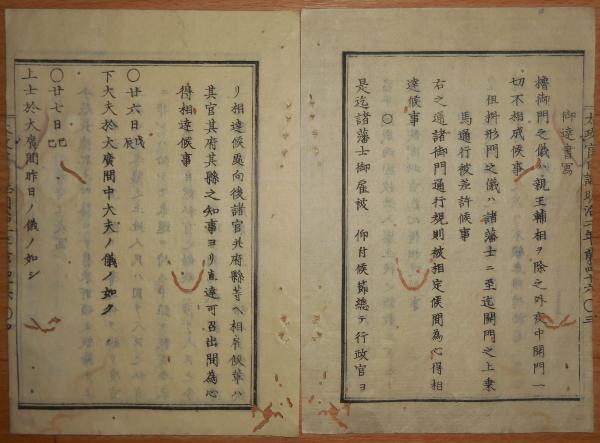 御達書写
櫓御門之儀ハ親王輔相ヲ除之外夜中開門一
切不相成候事
但桝形門之儀ハ諸藩士ニ至迄開門之上乗
馬通行被差許候事
右之通諸御門通行規則被相定候間為心得相
達候事
〇
是迄諸藩士御雇被 仰付候節總テ行政官ヨ
リ相達候處向後諸官并府縣等ヘ相雇候輩ハ
其官其府其縣之知事ヨリ直達可召出間為心
得相達候事
〇廿六日戊辰
下大夫於大廣間中大夫ノ儀ノ如ク
〇廿七日己巳
上士於大廣間昨日ノ儀ノ如シ